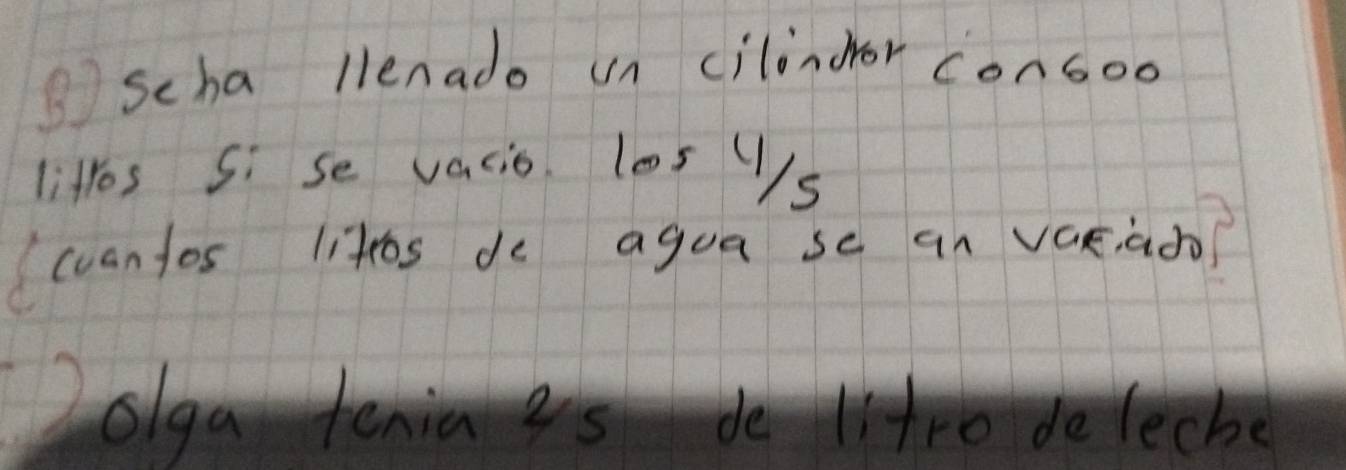 B) se ha llenado un cilindror con 600
litros si se vacio. los 4/5
¿cuantos litros de agua se an vaciado?
) olga tenia 2/5 de litro de leche